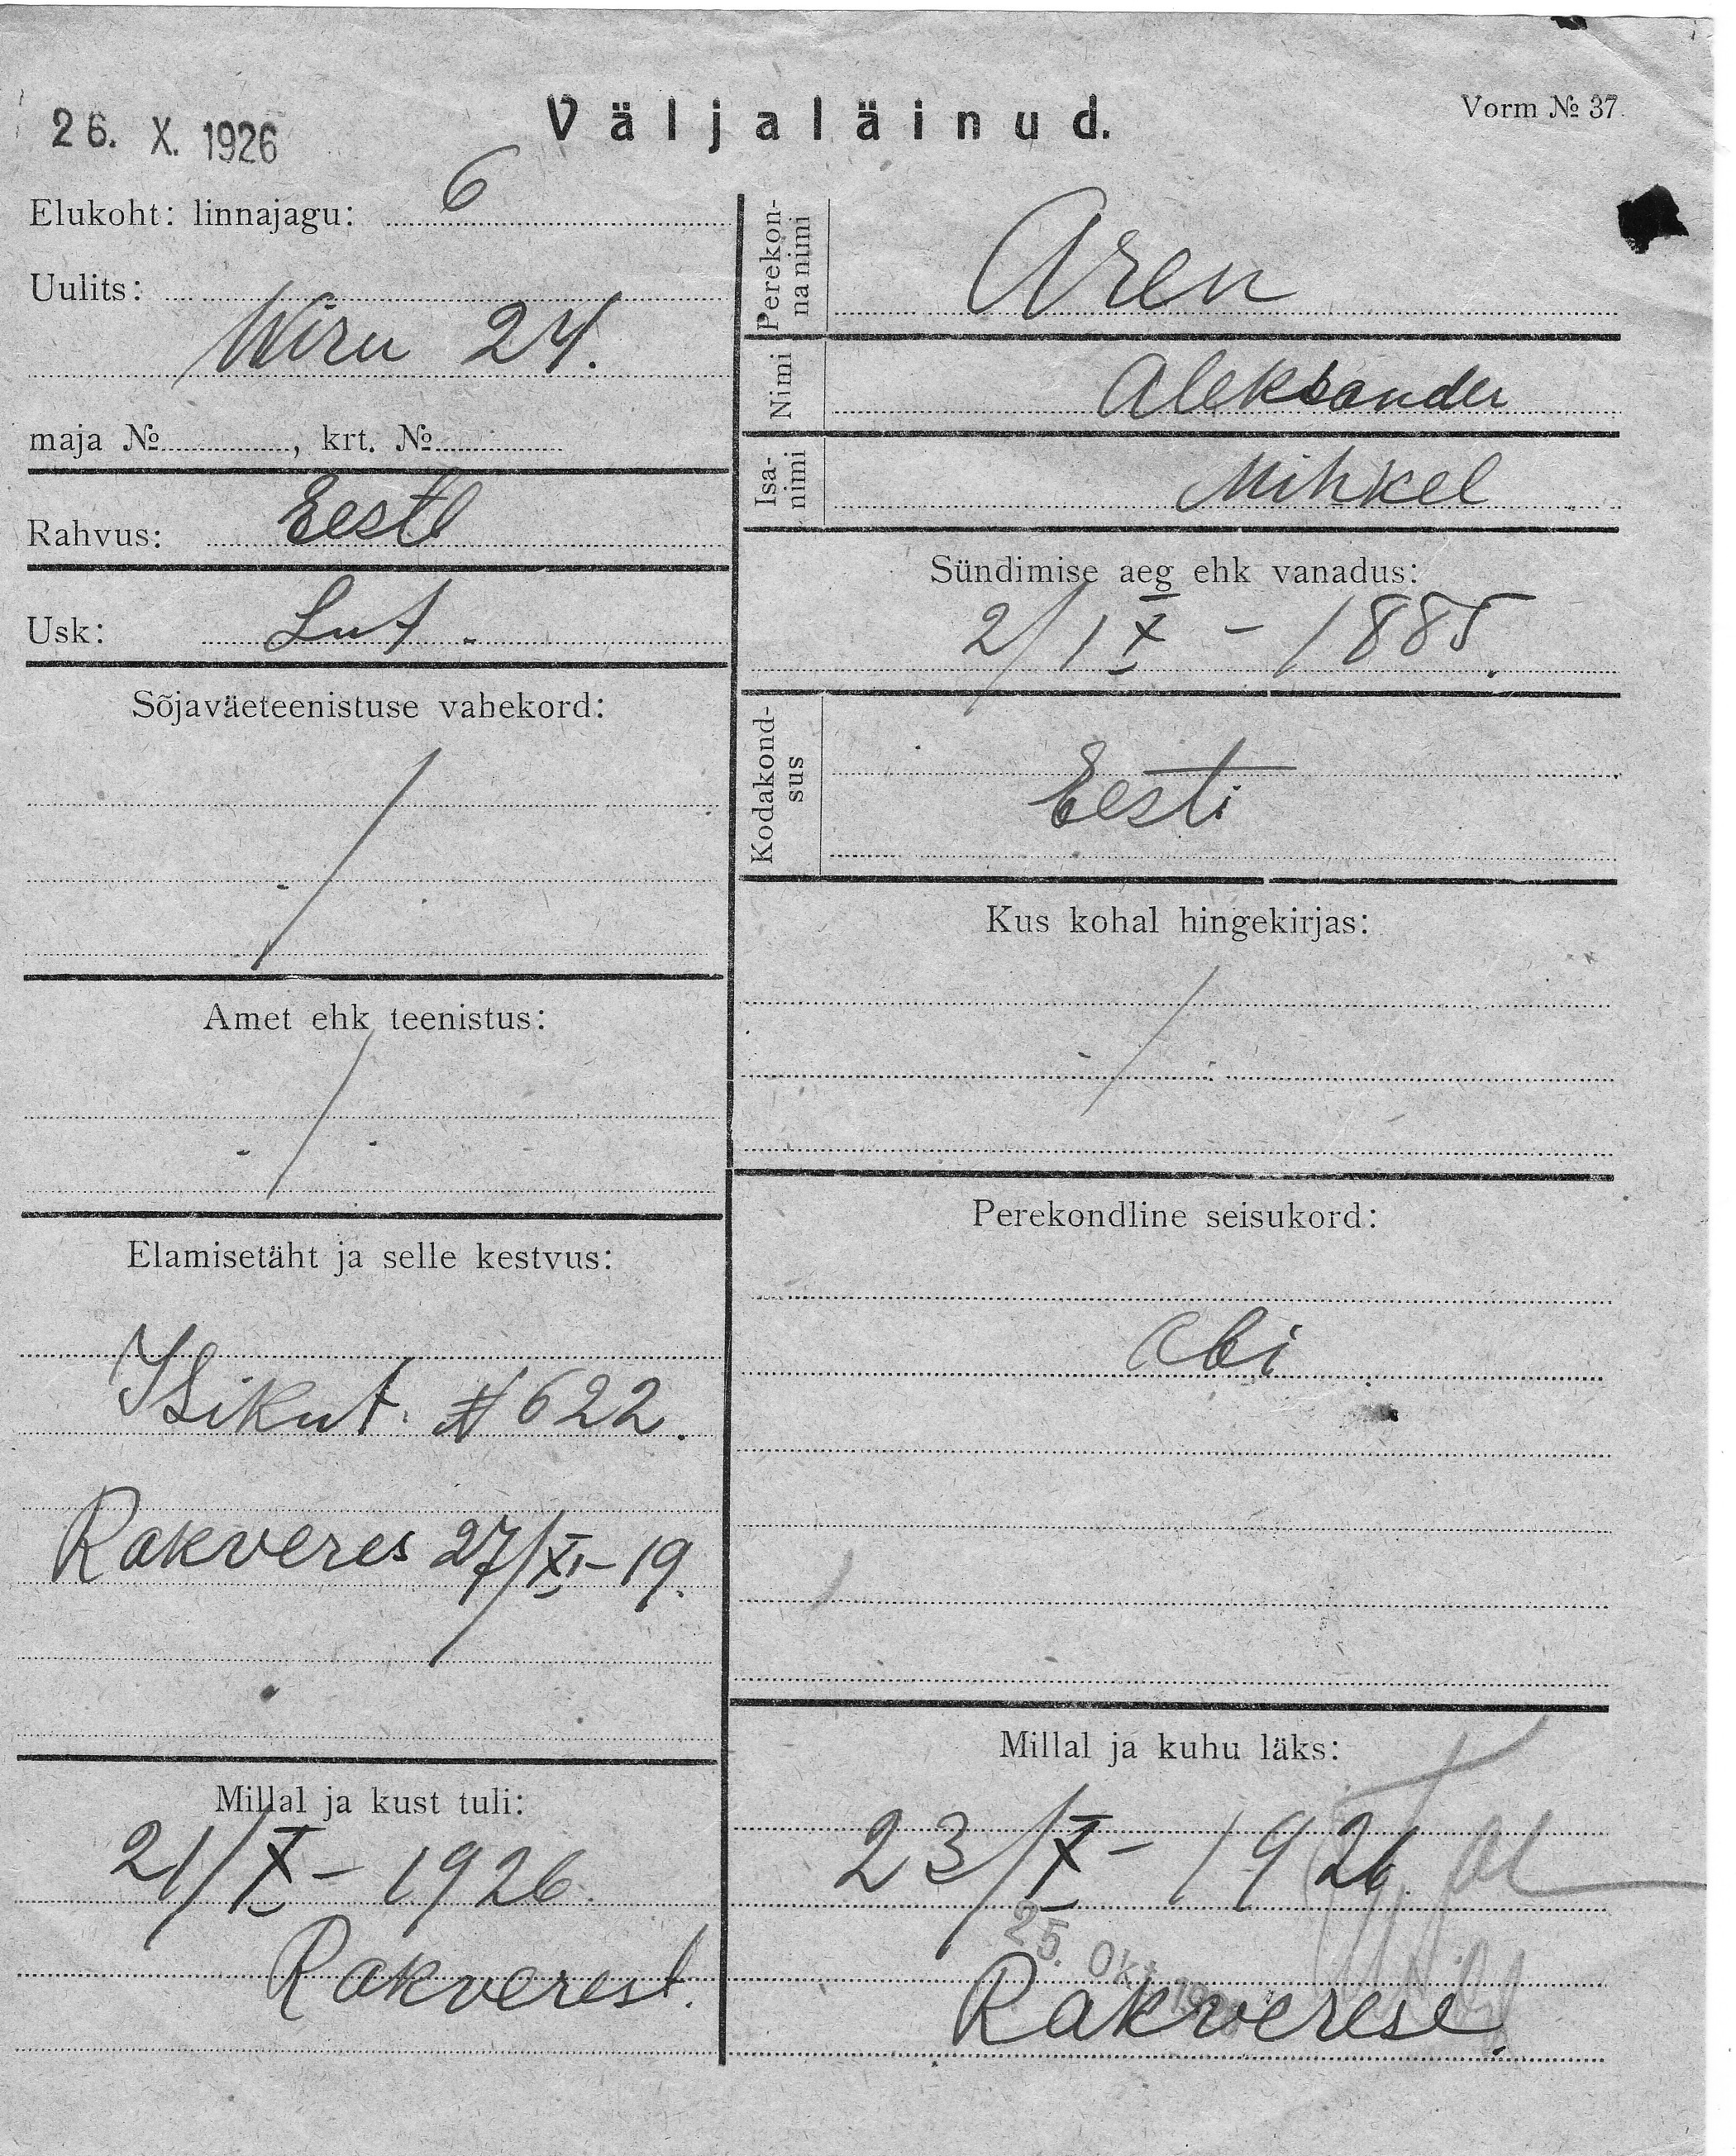 26. X. 1926
Väljaläinud.
Vorm № 37.
Elukoht: linnajagu: 6
Uulits:
Wiru 24.
maja №, krt. №
Rahvus: Eesti
Usk: Lut.
Sõjaväeteenistuse vahekord:
Amet ehk teenistus:
Elamisetäht ja selle kestvus:
Isikut. # 622.
Rakveres 27/XI-19.
Millal ja kust tuli:
21/X - 1926.
Rakverest.
Perekon-
na nimi
Aren
Nimi Aleksander
Isa-
nimi
Mihkel
Sündimise aeg ehk vanadus:
2/IX - 1885.
Kodakond-
sus
Eesti
Kus kohal hingekirjas:
Perekondline seisukord:
abi
Millal ja kuhu läks:
23/X - 1926
25. Okt. 1926
Rakverese.